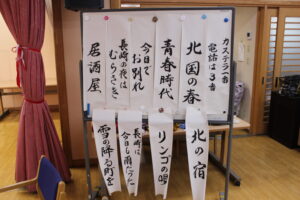 カステラ一番
電話は3番
北国の春
青春時代
今日で
お別れ
長崎の夜は
むらさき
居酒屋
北の宿
リンゴの唄
長崎は
今日も雨だった
雪の降る町を